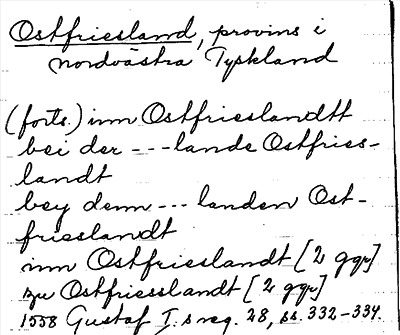 Ostfriesland, provins i
nordvästra Tyskland
(forts.) inn Ostfrieslandtt
bei der --- lande Ostfries-
landt
bey denn --- landen Ost-
frieslandt
inn Ostfrieslandt [2 ggr]
zu Ostfriesslandt [2 ggr]
1558 Gustaf I:s reg. 28, ss. 332-334.